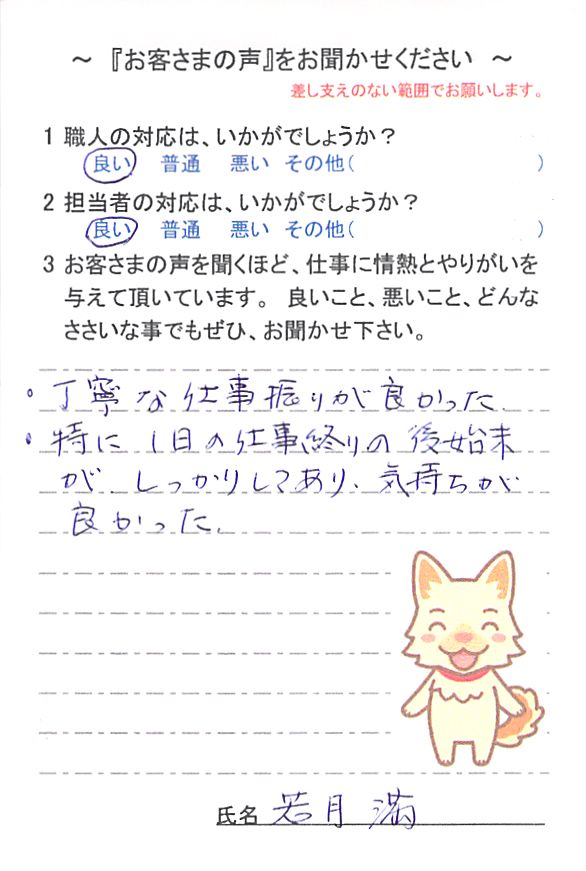 ～ 『お客さまの声』をお聞かせください ～
差し支えのない範囲でお願いします。
1 職人の対応は、いかがでしょうか？
良い 普通 悪い その他( )
2 担当者の対応は、いかがでしょうか？
良い 普通 悪い その他( )
3 お客さまの声を聞くほど、仕事に情熱とやりがいを
与えて頂いています。 良いこと、悪いこと、どんな
ささいな事でもぜひ、お聞かせ下さい。
。丁寧な仕事振りが良かった.
・特に 1日の仕事終りの後始末
が、しっかりしてあり、気持ちが
良かった.
氏名 若月 満